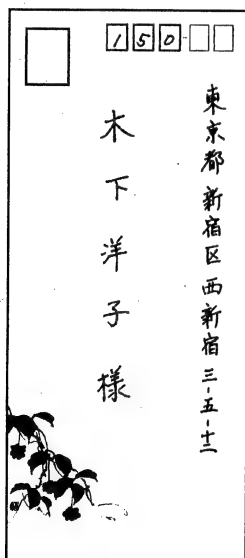 150-
東京都新宿区西新宿三-五-十二
木下洋子様